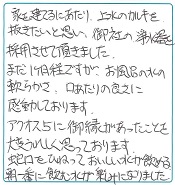 家を建てるにあたり、上水のカルキを
抜きたいと思い、御社の浄水器を
採用させて頂きました。
まだ1ヶ月程ですが、お風呂の水の
軟らかさ、口あたりの良さに
感動しております。
アクオス5に御縁があったことを
大変うれしく思っております。
蛇口をひねっておいしい水が飲める
朝一番に飲む水が楽しみになりました